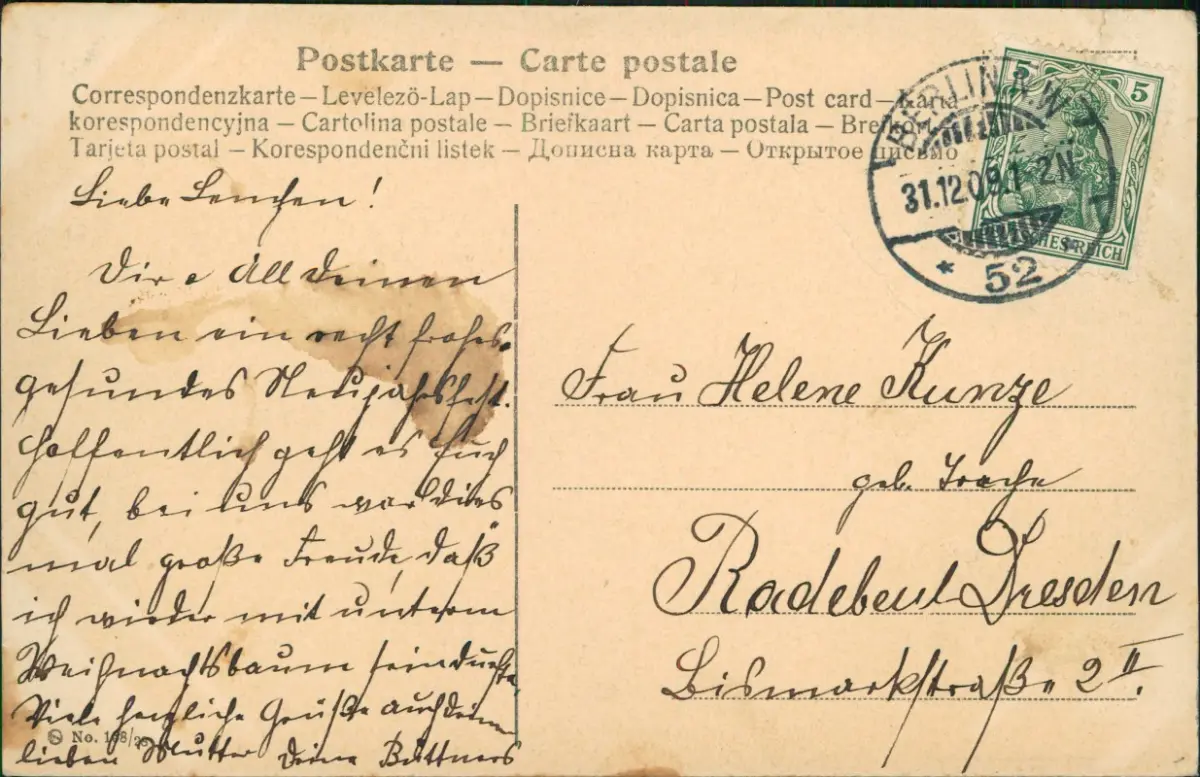 Postkarte — Carte postale
Correspondenzkarte – Levelező-Lap – Dopisnice – Dopisnica – Post card – Karta
korespondencyjna – Cartolina postale – Briefkaart – Carta postala – Bre
Tarjeta postal – Korespondenčni listek – Дописна карта – Открытое письмо
BERLIN N.W.
31.12.09.1 2N
* 52 *
5 5
REICH
Liebe Lenchen!
Dir u All deinen
Lieben ein recht frohes
gesundes Neujahrsfest.
Hoffentlich geht es Euch
gut, bei uns war dies
mal große Freude, daß
ich wieder mit unterm
Weihnachtsbaum sein durfte
Viele herzliche Grüße auch deiner
lieben Mutter Deine Büttners
No. 188/25
Frau Helene Kunze
geb.
Radebeul Dresden
Bismarkstraße 2 II.